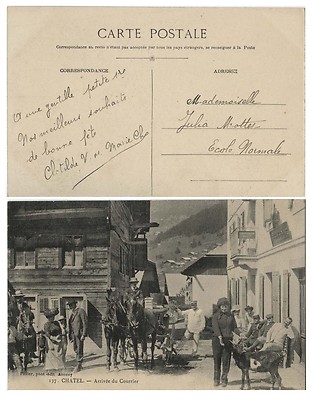 CARTE POSTALE
Correspondance au recto n'étant pas acceptée par tous les pays étrangers, se renseigner à la Poste
CORRESPONDANCE
A une gentille petite
Nos meilleurs souhaits
de bonne fête
Clotilde V et Marie
ADRESSE
Mademoiselle
Julia Mottet
École Normale
127. CHATEL. — Arrivée du Courrier